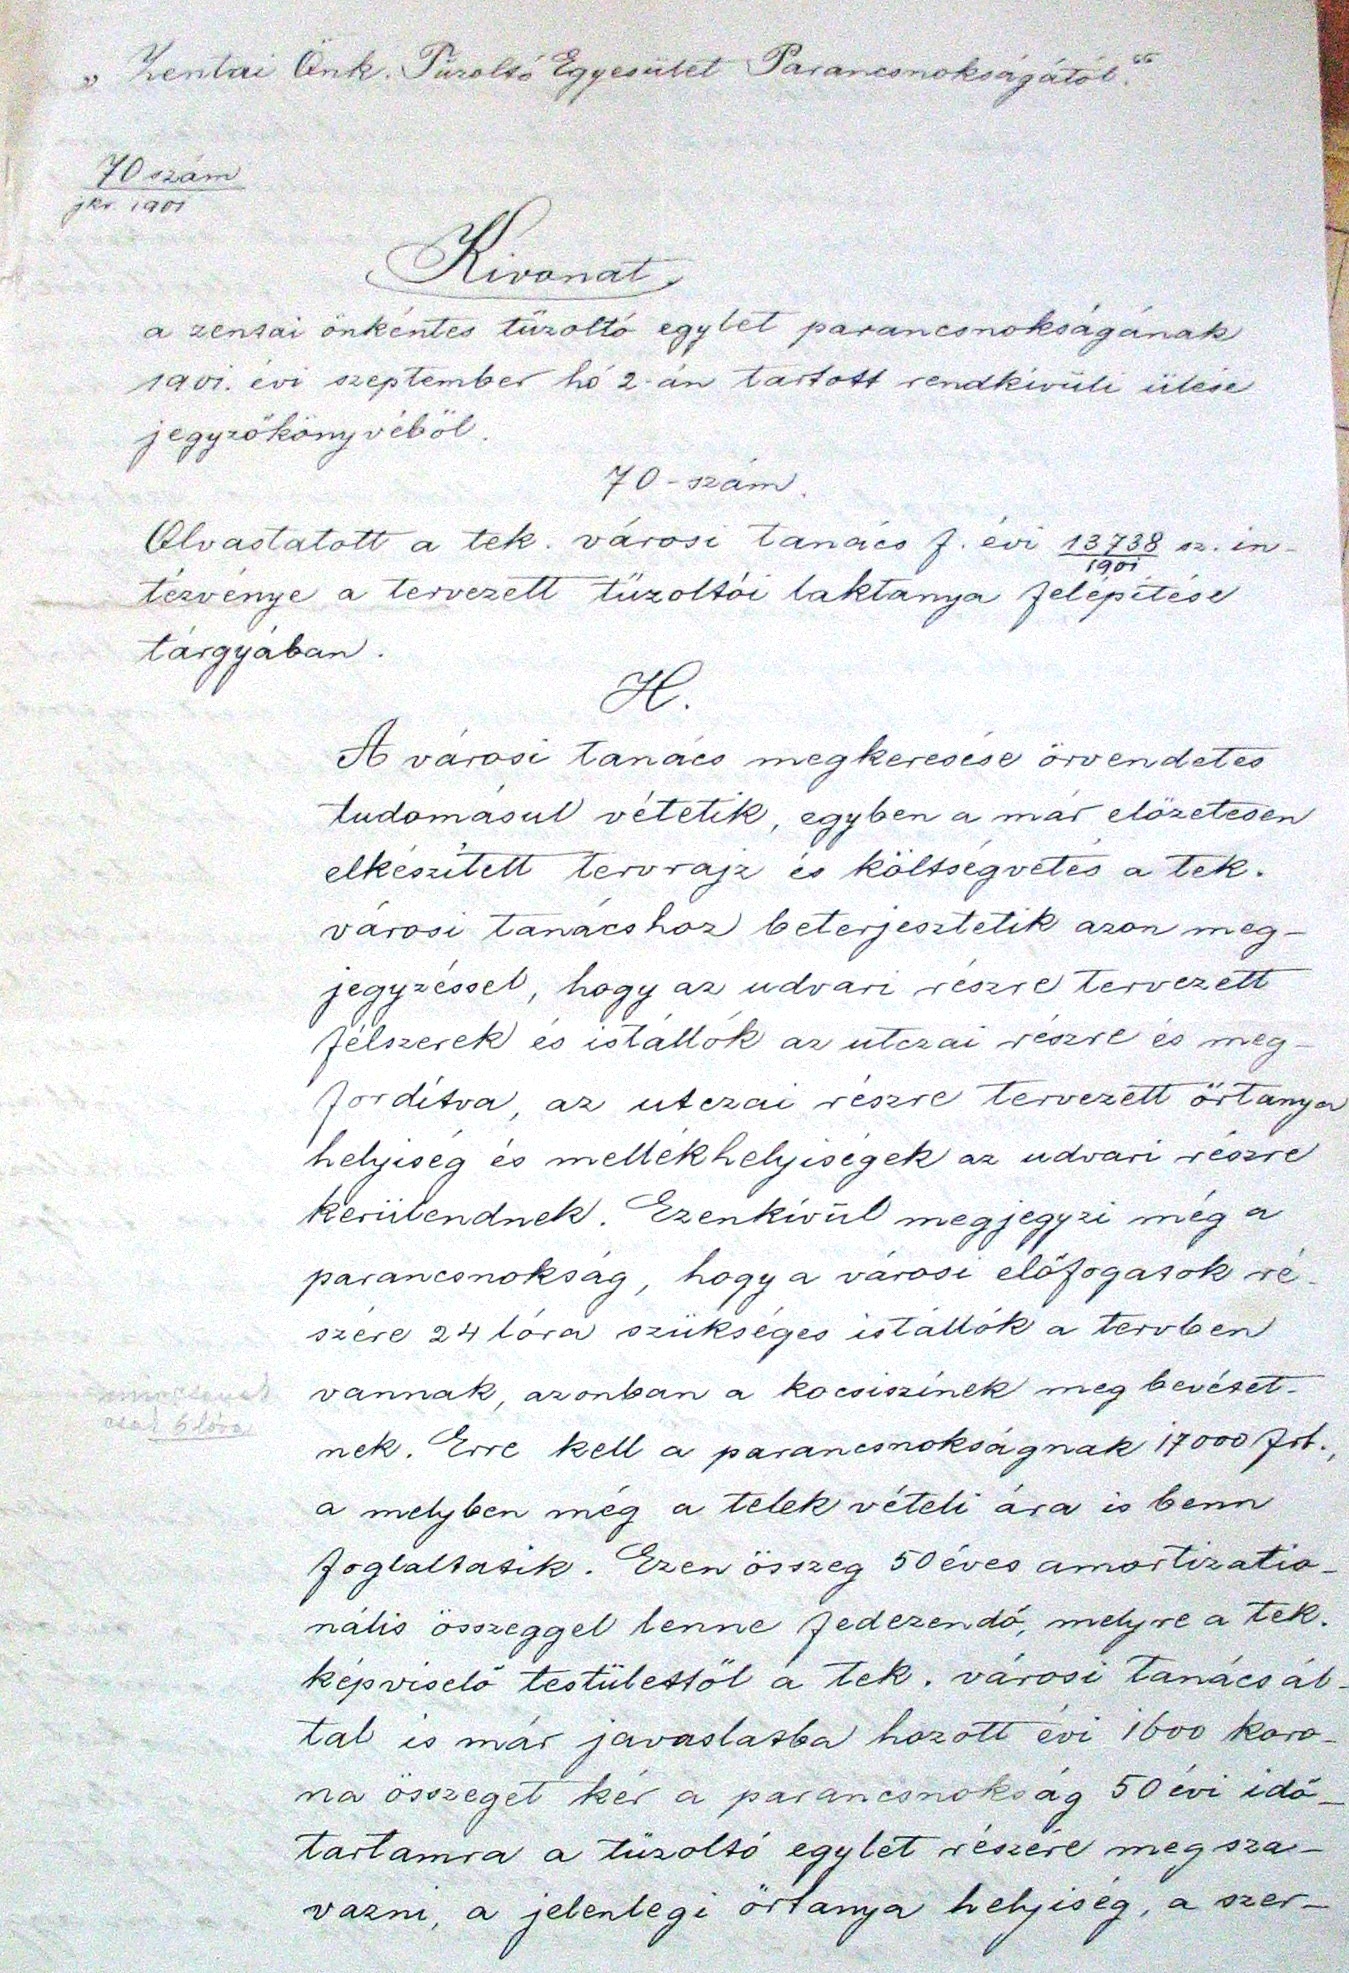 „Zentai Önk. Tűzoltó Egyesület Parancsnokságától."
70 szám
jkv. 1901
Kivonat
a zentai önkéntes tűzoltó egylet parancsnokságának
1901. évi szeptember hó 2-án tartott rendkívüli ülése
jegyzőkönyvéből.
70-szám.
Olvastatott a tek. városi tanács f. évi 13738/1901 sz. in-
tézvénye a tervezett tűzoltói laktanya felépítése
tárgyában.
H.
A városi tanács megkeresése örvendetes
tudomásul vétetik, egyben a már előzetesen
elkészített tervrajz és költségvetés a tek.
városi tanácshoz beterjesztetik azon meg-
jegyzéssel, hogy az udvari részre tervezett
félszerek és istállók az utczai részre és meg-
fordítva, az utczai részre tervezett őrtanya
helyiség és mellékhelyiségek az udvari részre
kerülendnek. Ezenkívül megjegyzi még a
parancsnokság, hogy a városi előfogatok ré-
szére 24 lóra szükséges istállók a tervben
vannak, azonban a kocsiszínek meg bevétet-
nek. Erre kell a parancsnokságnak 17000 frt.,
a melyben még a telek vételi ára is benn
foglaltatik. Ezen összeg 50 éves amortizatio-
nális összeggel lenne fedezendő, melyre a tek.
képviselő testülettől a tek. városi tanács ál-
tal is már javaslatba hozott évi 1600 koro-
na összeget kér a parancsnokság 50 évi idő-
tartamra a tűzoltó egylet részére megsza-
vazni, a jelenlegi őrtanya helyiség, a szer-
csak 6 lóra